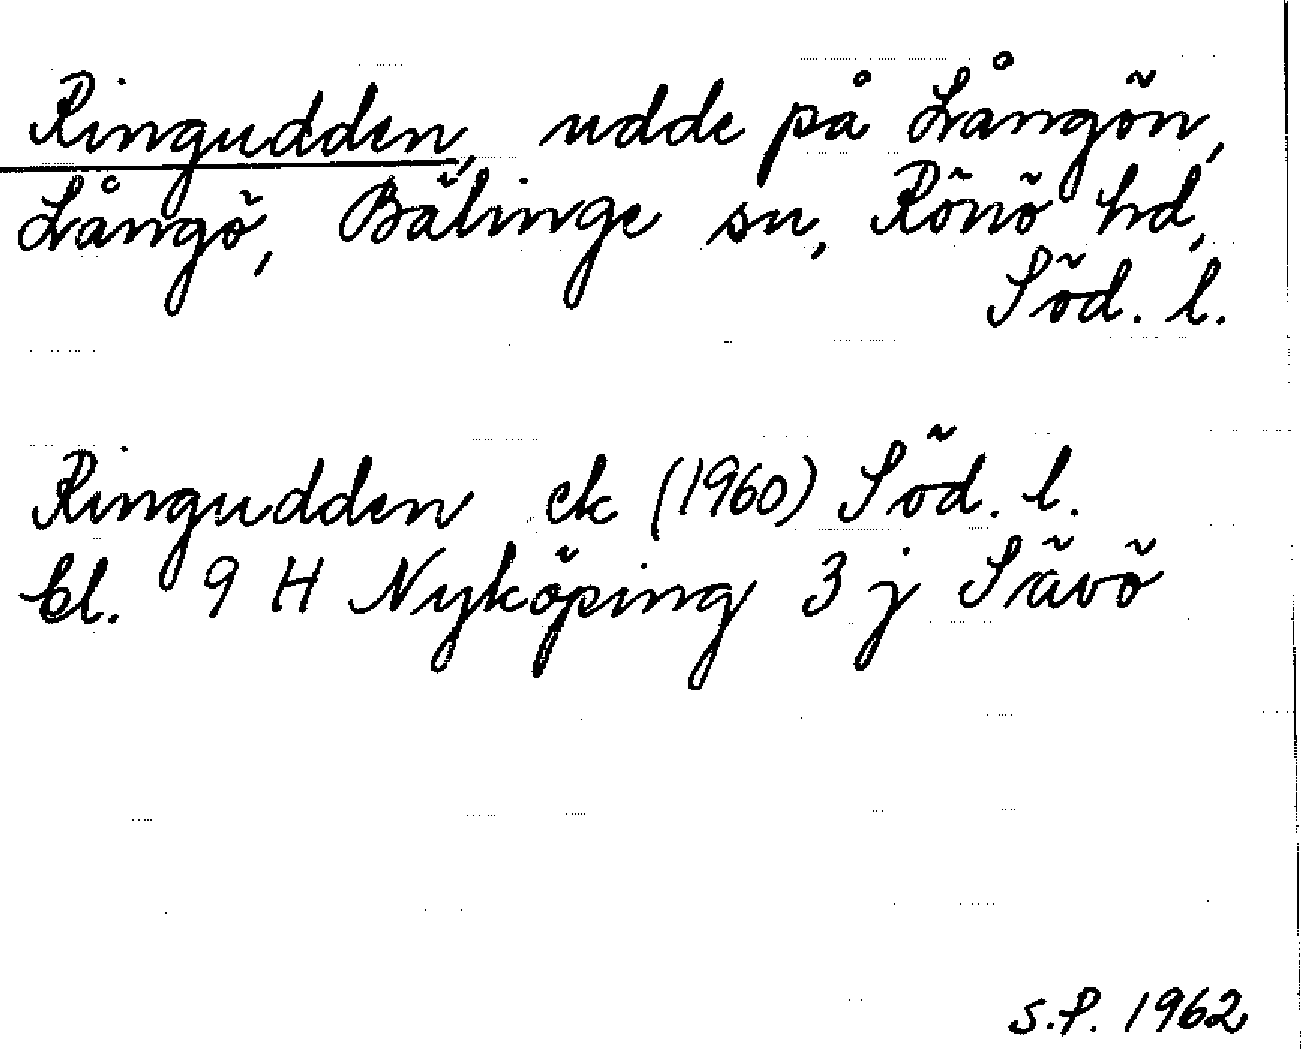 Ringudden, udde på Långön,
Långö, Bälinge sn, Rönö hd,
Söd. l.
Ringudden ek (1960) Söd. l.
bl. 9 H Nyköping 3 j Sävö
S.P. 1962